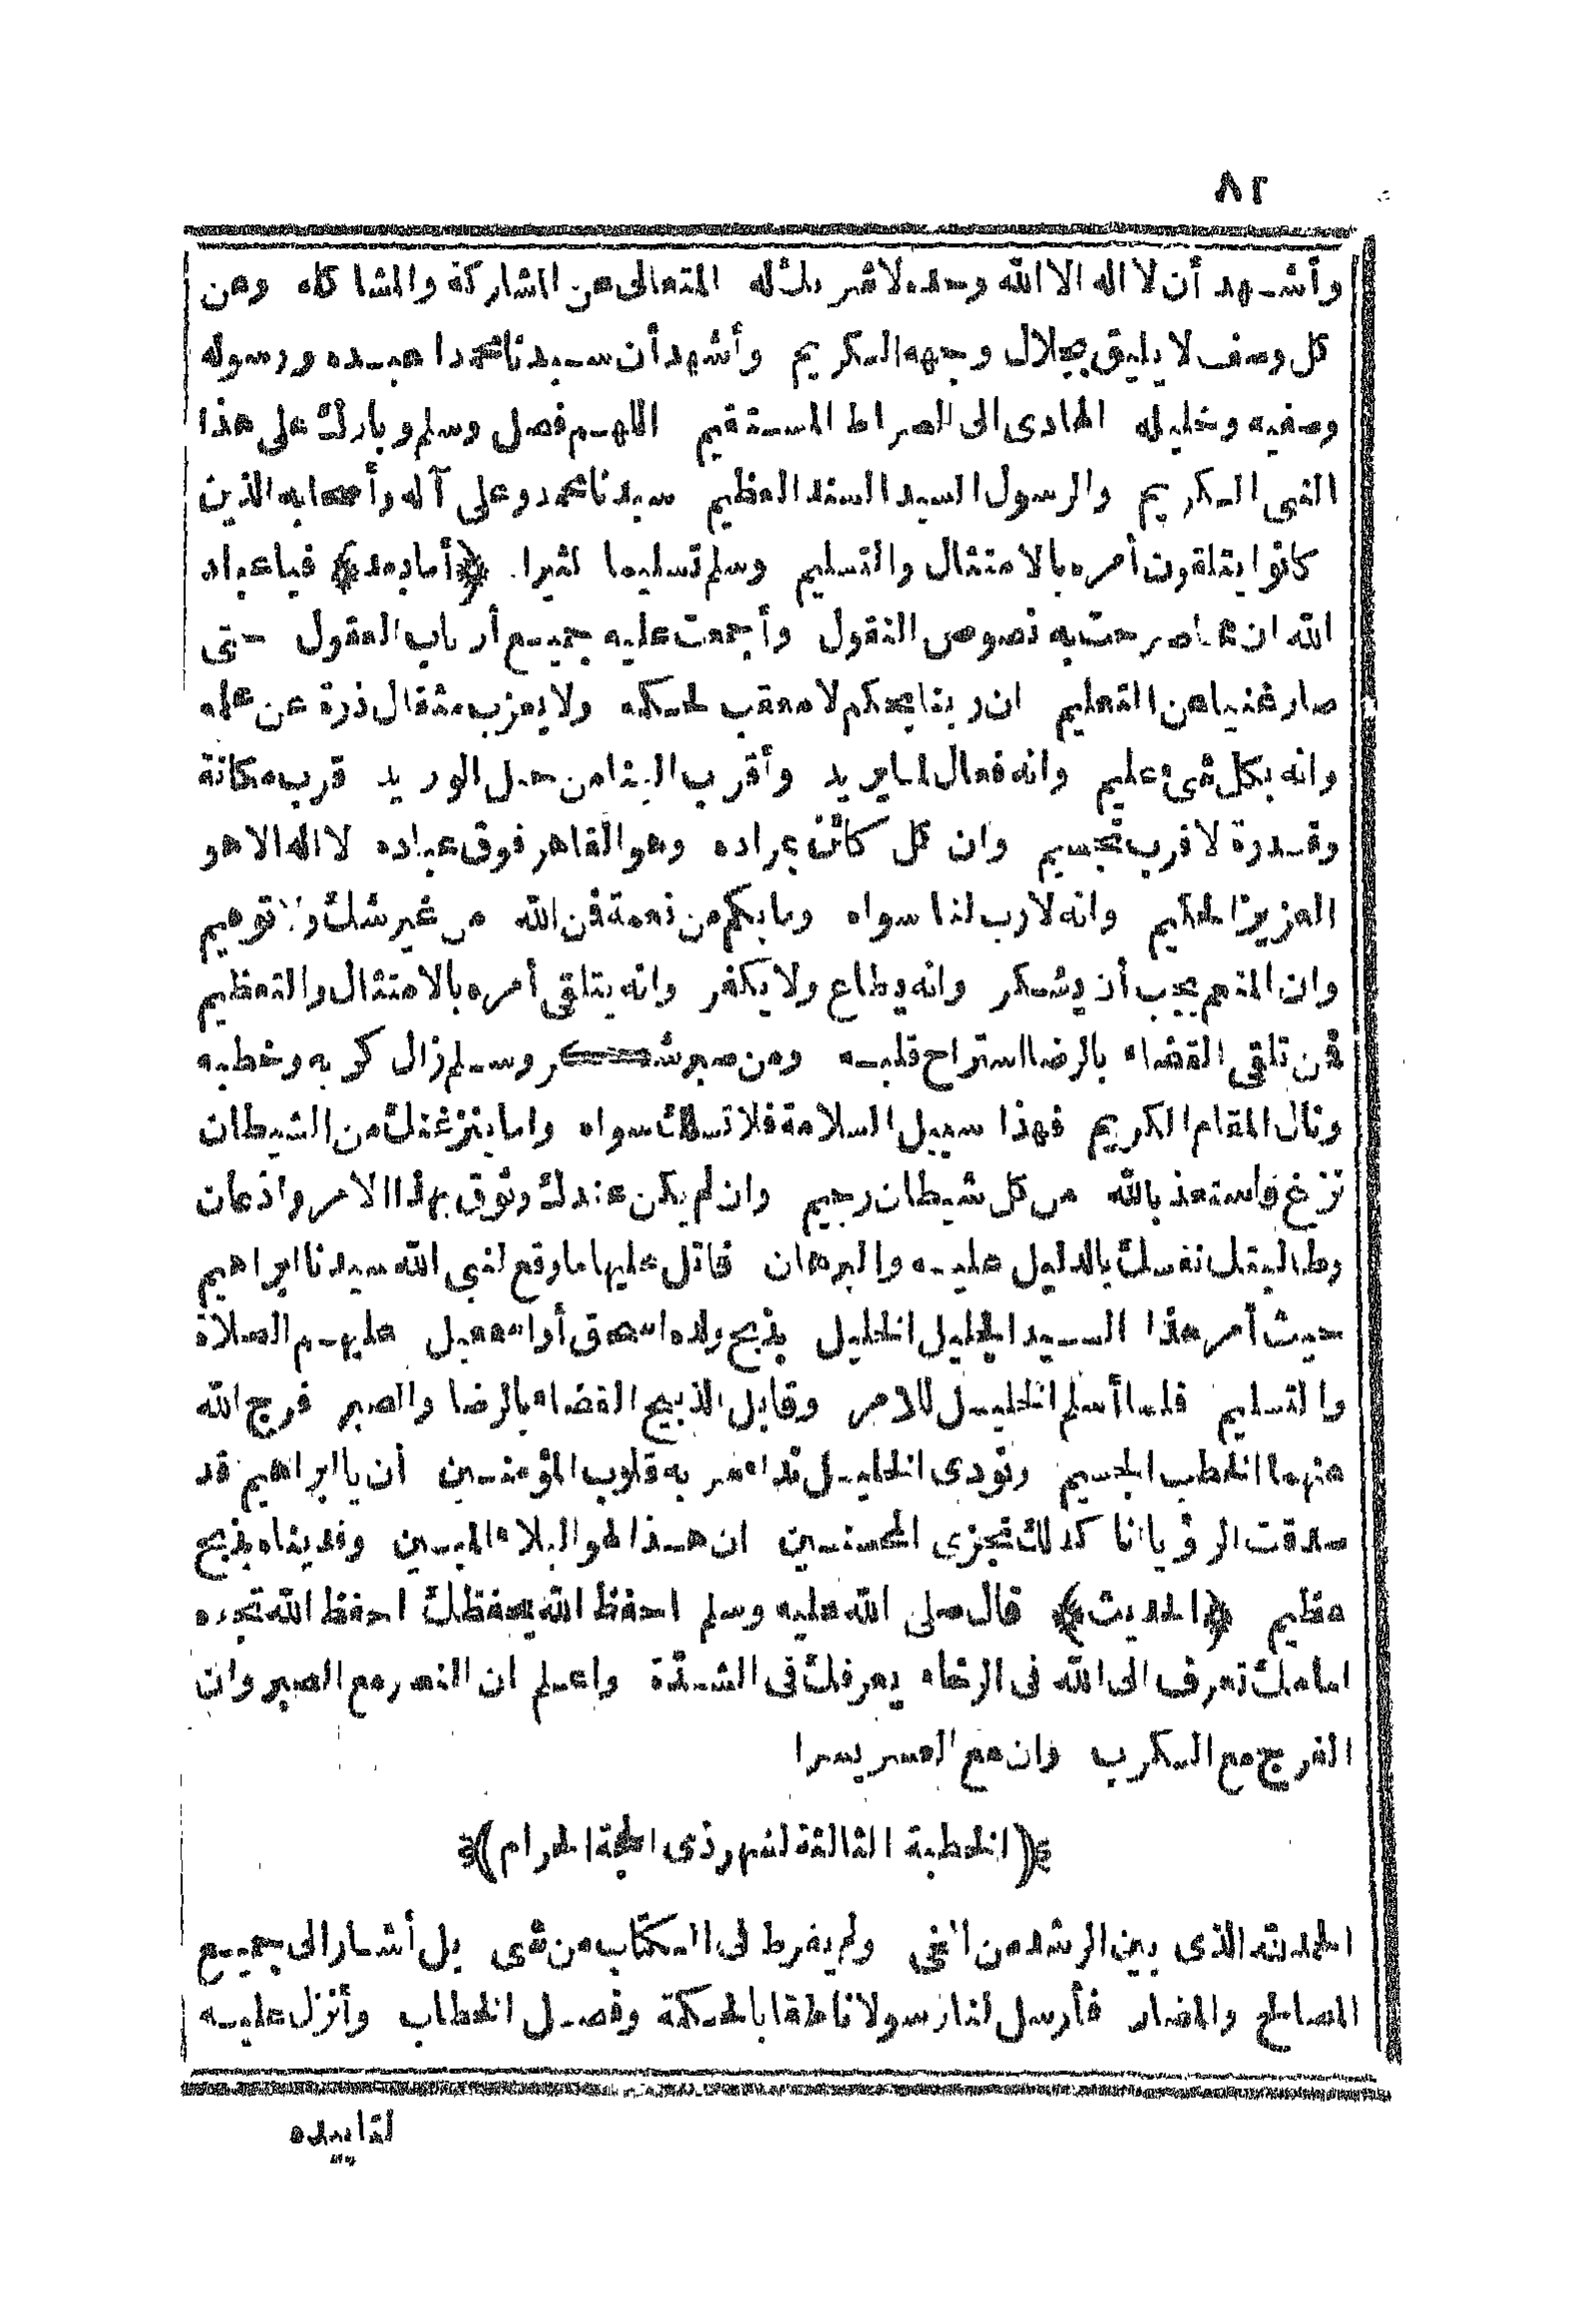 ٨٢
وأشهد أن لا اله الا الله وحده لا شريك له المتعالى عن المشاركة والمشاكله وعن
كل وصف لا يليق بجلال وجهه الكريم وأشهد أن سيدنا محمدا عبده ورسوله
وصفيه وخليله الهادى الى الصراط المستقيم اللهم فصل وسلم وبارك على هذا
النبى الكريم والرسول السيد السند العظيم سيدنا محمد وعلى آله وأصحابه الذين
كانوا يتلقون أمره بالامتثال والتسليم وسلم تسليما كثيرا. ﴿أما بعد﴾ فيا عباد
الله ان مما صرحت به نصوص النقول وأجمعت عليه جميع أرباب العقول حتى
صار غنيا عن التعليم ان ربنا يحكم لا معقب لحكمه ولا يعزب مثقال ذرة عن علمه
وانه بكل شىء عليم وانه فعال لما يريد وأقرب الينا من حبل الوريد قرب مكانة
وقدرة لا قرب تجسيم وان كل كائن بمراده وهو القاهر فوق عباده لا اله الا هو
العزيز الحكيم وانه لا رب لنا سواه وما بكم من نعمة فمن الله من غير شك ولا توهيم
وان المنعم يجب أن يشكر وانه يطاع ولا يكفر وانه يتلقى أمره بالامتثال والتعظيم
فمن تلقى القضاء بالرضا استراح قلبه ومن صبر شكر وسلم زال كربه وخطبه
ونال المقام الكريم فهذا سبيل السلامة فلا تسلك سواه واما ينزغنك من الشيطان
نزغ فاستعذ بالله من كل شيطان رجيم وان لم يكن عندك وثوق بهذا الامر واذعان
وطالبتك نفسك بالدليل عليه والبرهان فاتل عليها ما وقع لنبى الله سيدنا ابراهيم
حيث أمر هذا السيد الجليل الخليل بذبح ولده اسحق أو اسمعيل عليهم الصلاة
والتسليم فلما أسلم الخليل للامر وقابل الذبيح القضاء بالرضا والصبر فرج الله
عنهما الخطب الجسيم ونودى الخليل نداء سر به قلوب المؤمنين أن يا ابراهيم قد
صدقت الرؤيا انا كذلك نجزى المحسنين ان هذا لهو البلاء المبين وفديناه بذبح
عظيم ﴿الحديث﴾ قال صلى الله عليه وسلم احفظ الله يحفظك احفظ الله تجده
امامك تعرف الى الله فى الرخاء يعرفك فى الشدة واعلم ان النصر مع الصبر وان
الفرج مع الكرب وان مع العسر يسرا
﴿(الخطبة الثالثة لشهر ذى الحجة الحرام)﴾
الحمد لله الذى بين الرشد من الغى ولم يفرط فى الكتاب من شى بل أشار الى جميع
المصالح والمضار فأرسل لنا رسولا ناطقا بالحكمة وفصل الخطاب وأنزل عليه
لتأييده